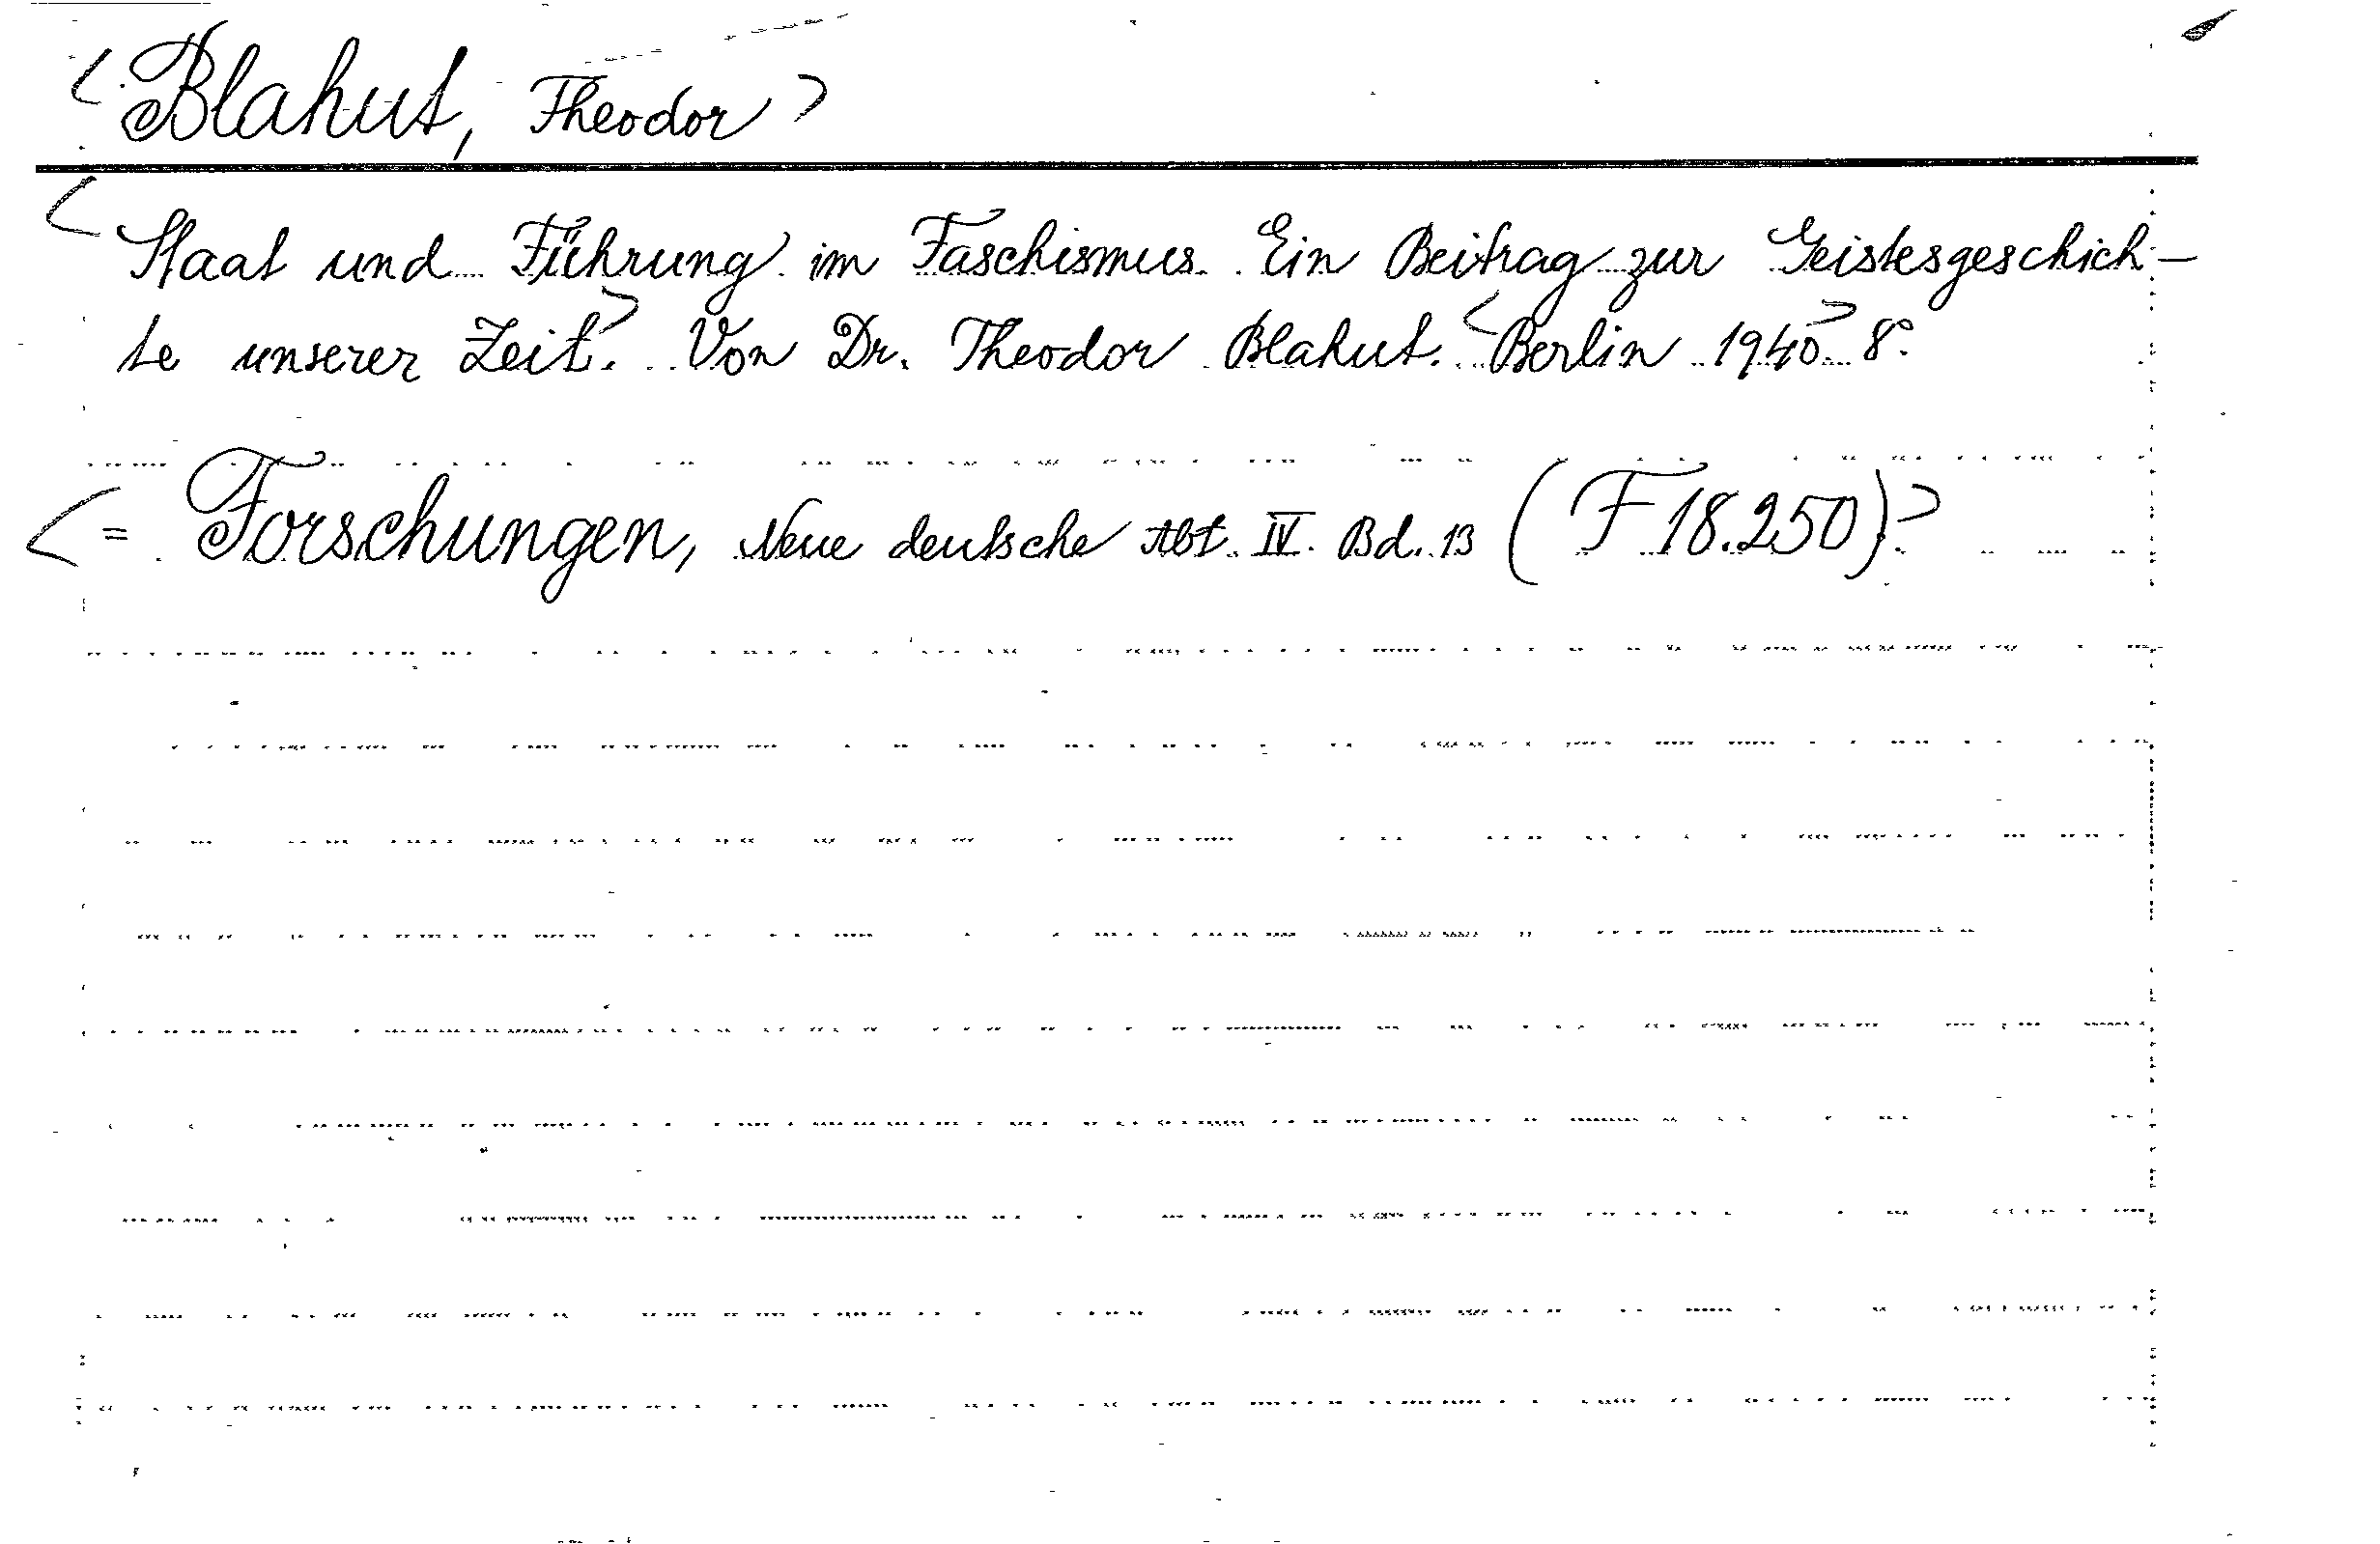 <Blahut, Theodor>
<Staat und Führung im Faschismus. Ein Beitrag zur Geistesgeschich-
te unserer Zeit>. Von Dr. Theodor Blahut. <Berlin 1940> 8°.
<= Forschungen, Neue deutsche Abt. IV. Bd. 13 (F 18.250)>.